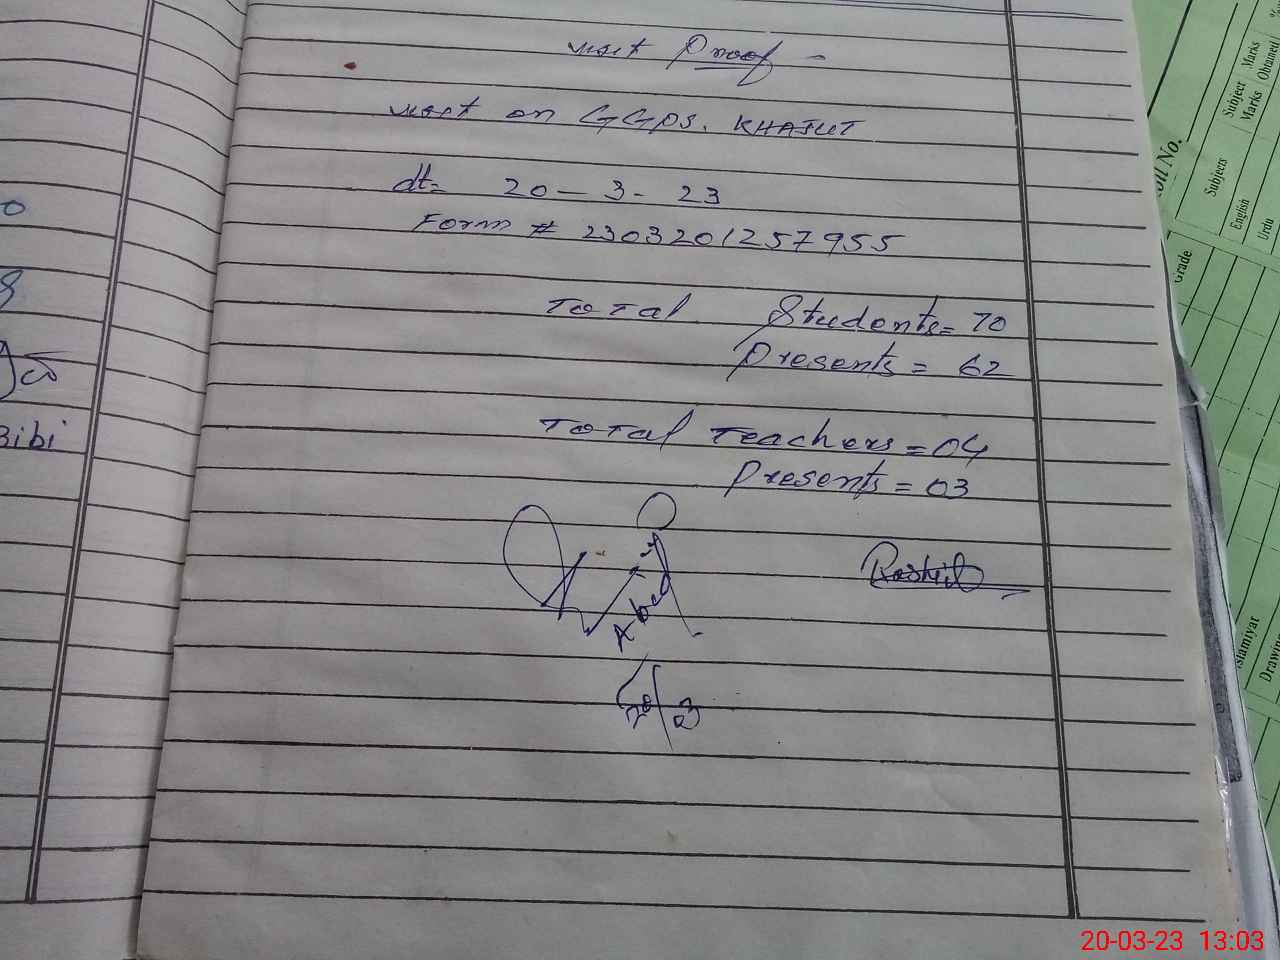 visit Proof -
visit on GGPS. KHAJUT
dt= 20 - 3 - 23
Form # 2303201257955
Total Students= 70
Presents = 62
Total Teachers = 04
Presents = 03
Rashid
Abed
20/23
Bibi
Roll No.
Grade
Subjects
Subject Marks
Marks Obtained
English
Urdu
Islamiyat
Drawing
20-03-23 13:03